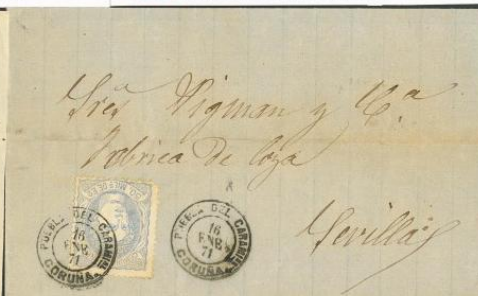 Sres Pigman y Ca
Fabrica de loza
Sevilla
PUEBLA DEL CARAMIÑAL
16
ENE
71
CORUÑA
PUEBLA DEL CARAMIÑAL
16
ENE
71
CORUÑA